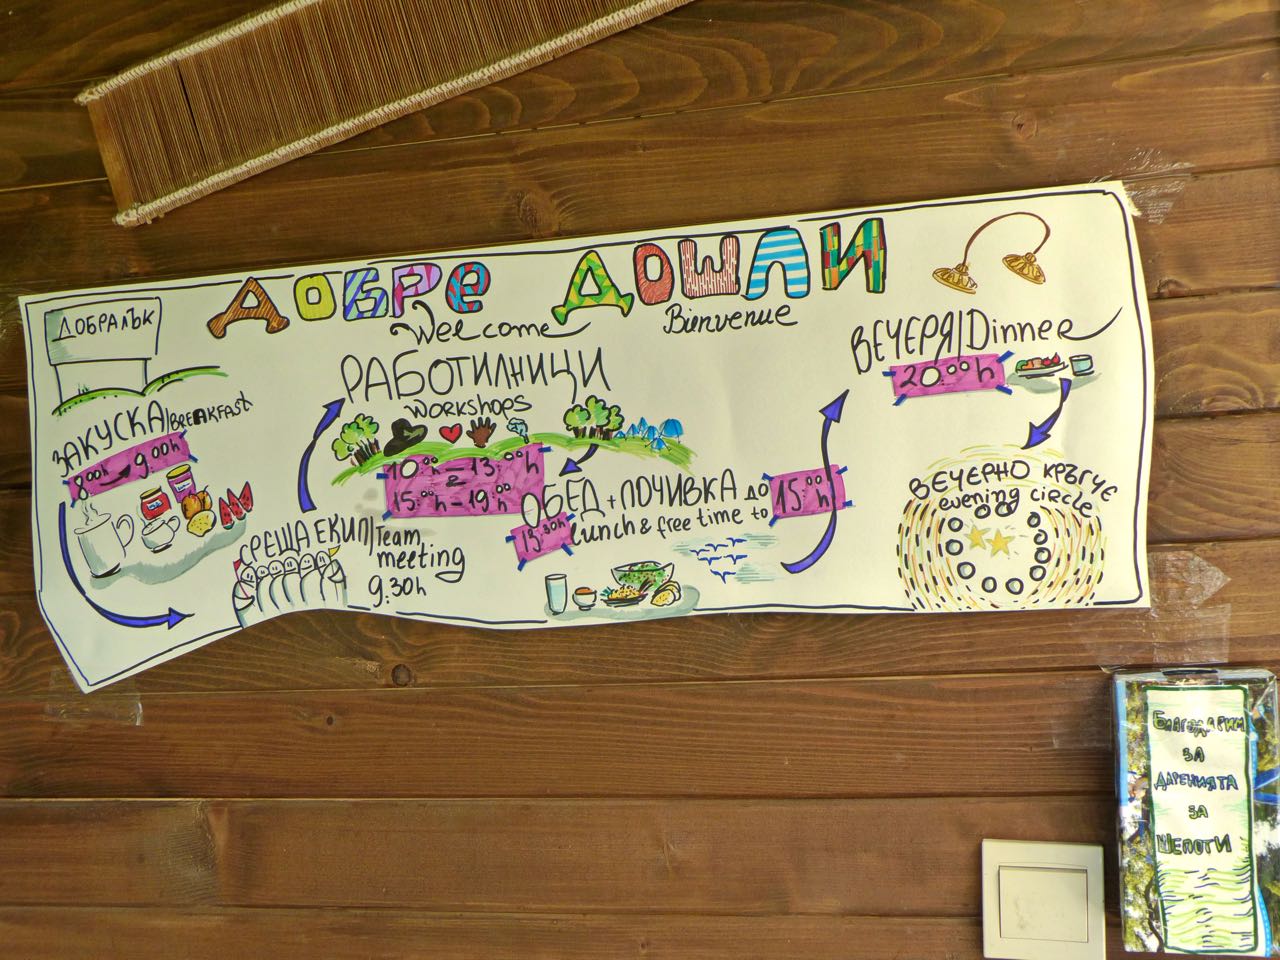 ДОБРЕ ДОШЛИ
Welcome
Bienvenue
ДОБРАЛЪК
ЗАКУСКА/BREAKFAST
8:00h 9:00h
СРЕЩА ЕКИП/Team
meeting
9:30h
РАБОТИЛНИЦИ
WORKSHOPS
10:00h – 13:00h
15:00h – 19:00h
ОБЕД + ПОЧИВКА ДО
15:00h
13:30h
lunch & free time to
ВЕЧЕРЯ/Dinner
20:00h
ВЕЧЕРНО КРЪГЧЕ
evening circle
БЛАГОДАРИМ
ЗА
ДАРЕНИЯТА
ЗА
ШЕПОТИ